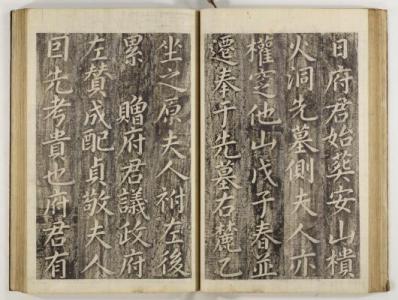 日府君始葬安山樻
火洞先墓側夫人亦
權窆他山戊子春並
遷奉于先墓右麓乙
坐之原夫人祔左後
累 贈府君議政府
左贊成配貞敬夫人
㠯先考貴也府君有